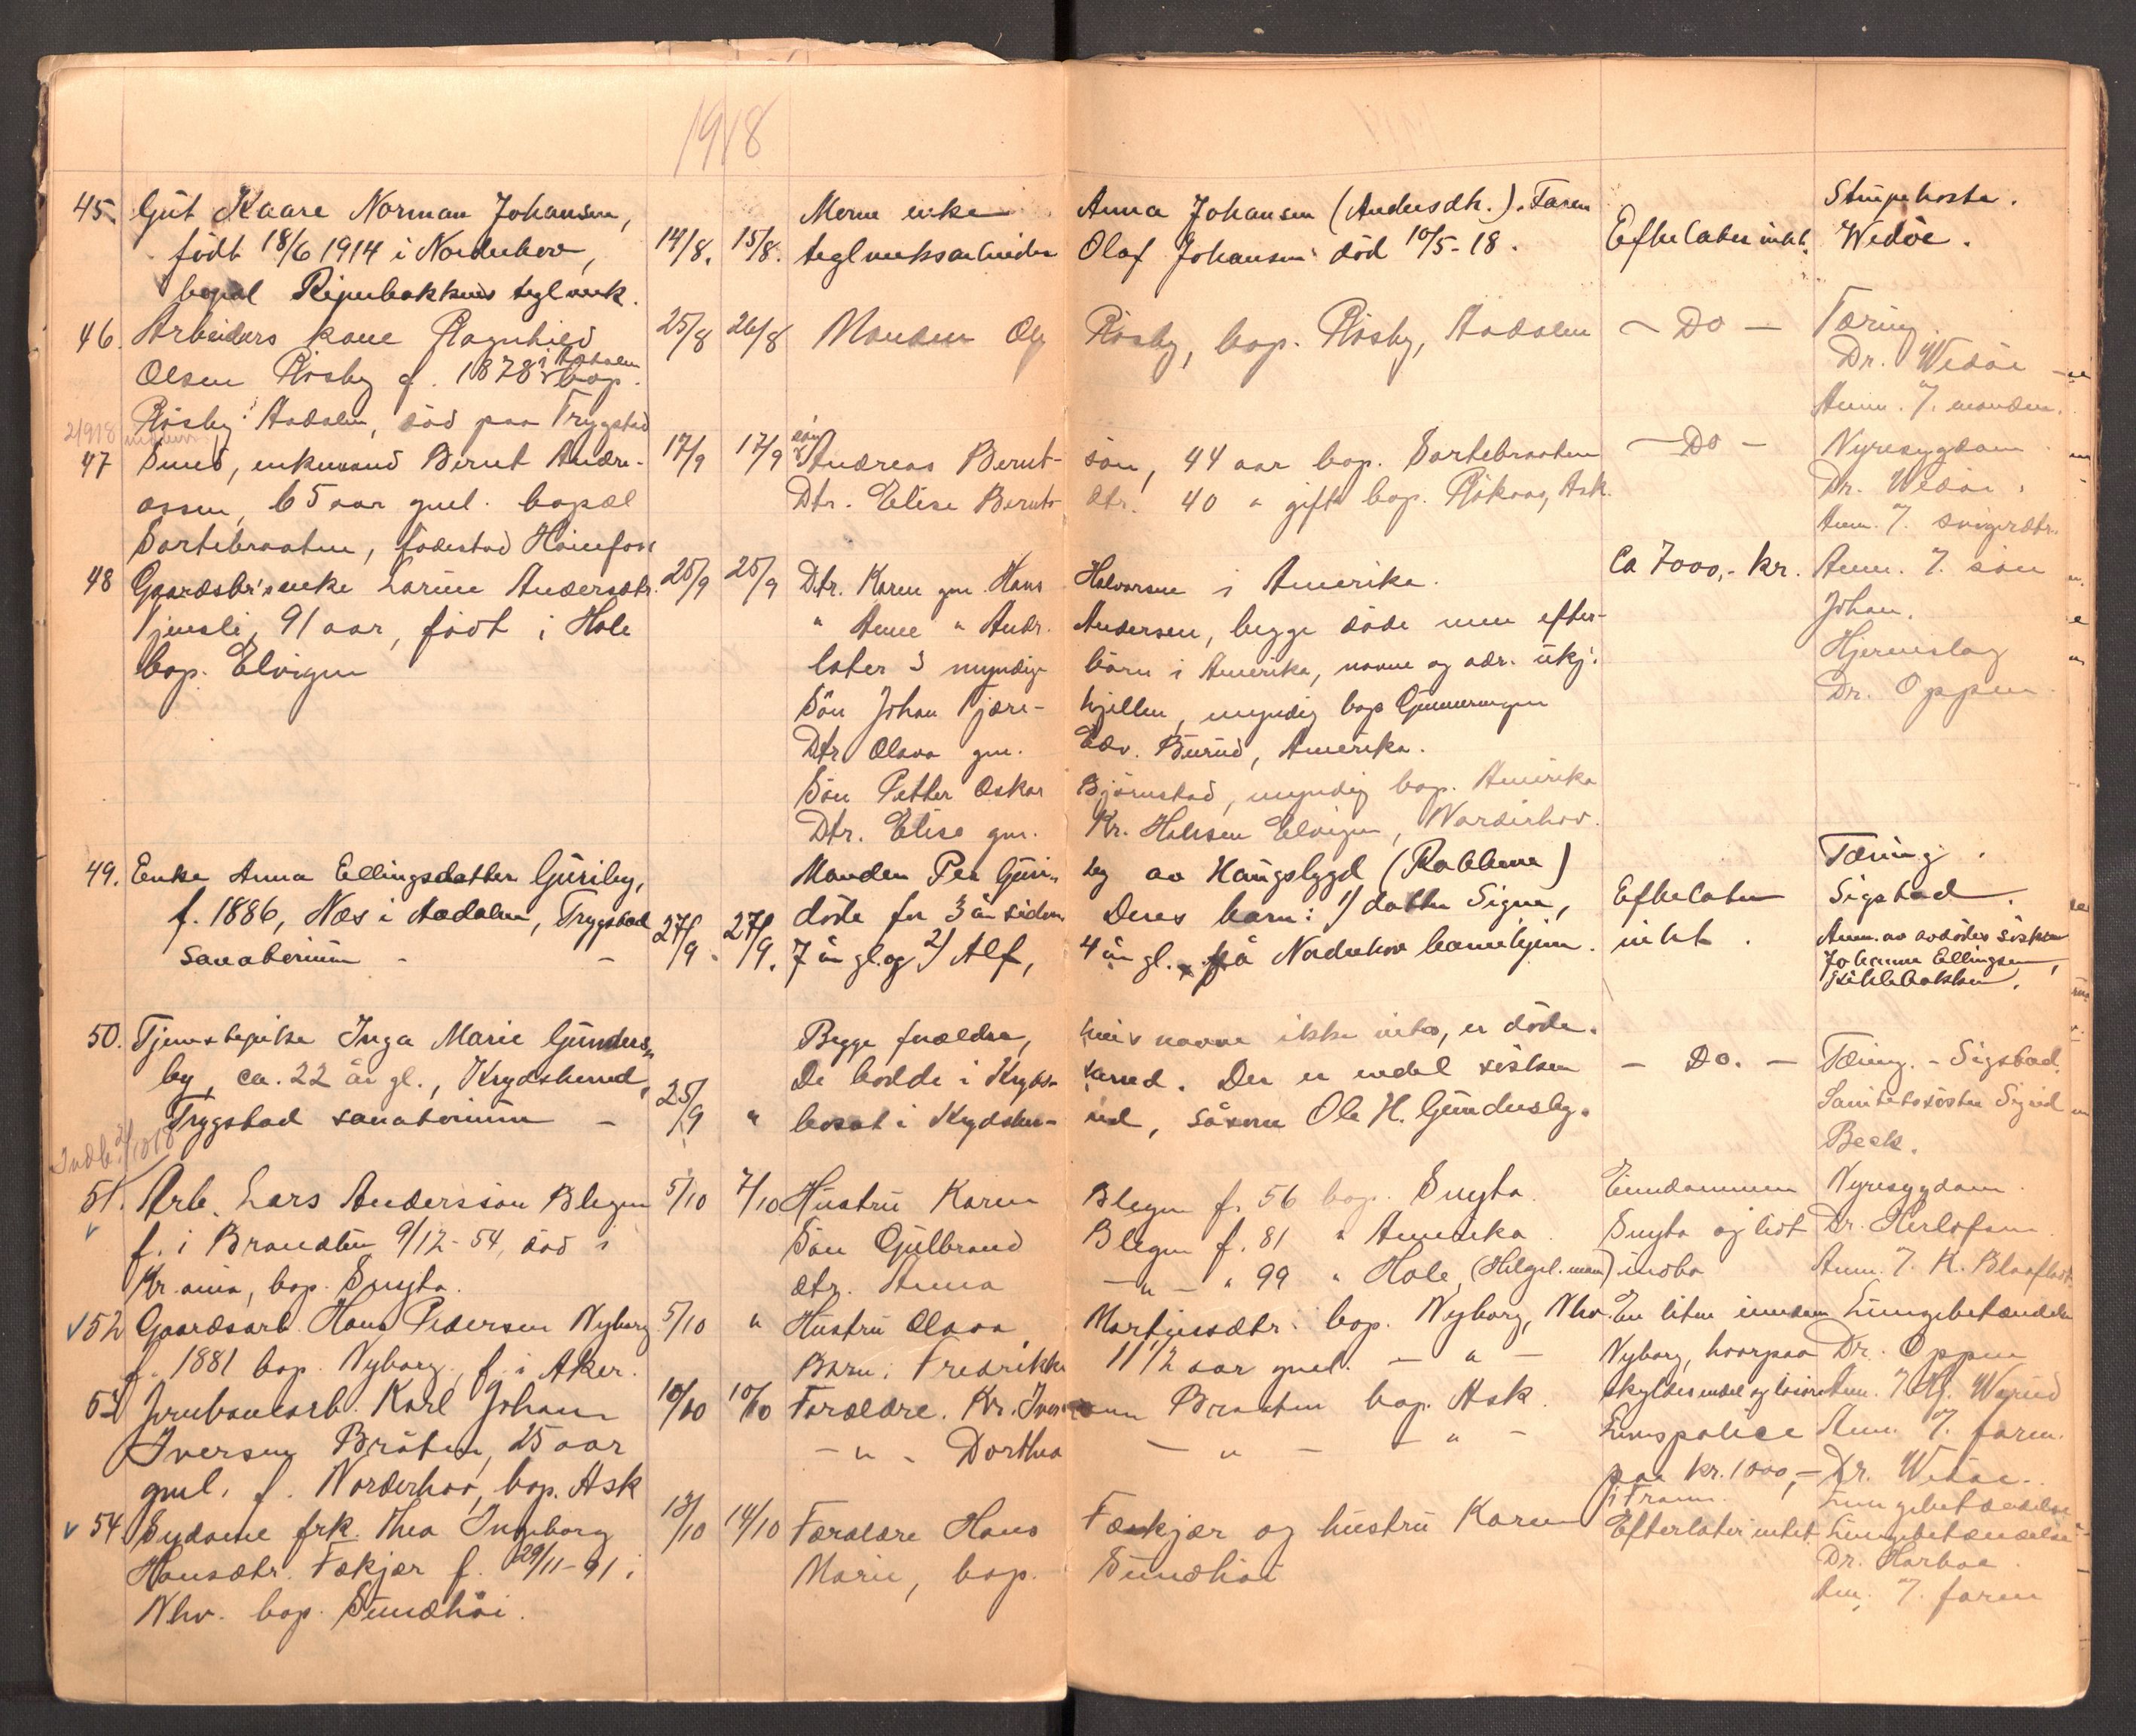 1918
45. Gut Kaare Norman Johansen,
født 18/6 1914 i Norderhov,
bopæl Riperbakkens teglverk.
14/8. 15/8.
Moren enke Anna Johansen (Andersdh.). Faren
teglverksarbeider Olaf Johansen død 10/5-18.
Efterlater intet.
Strupehoste.
Wedøe.
46. Arbeiders kone Ragnhild
Olsen Røsby f. 1878 i Aadalen bop.
Røsby Aadalen, død paa Trygstad
25/8 26/8
Manden Ole Røsby, bop. Røsby, Aadalen
— Do —
Tæring.
Dr. Wedøe
Anm. 7. manden.
2/918 indberr.
47 Smed, enkemand Bernt Andre-
assen, 65 aar gml. bopæl
Sortebraaten, fødestad Hønefoss
17/9 17/9
søn Andreas Bernt- søn, 44 aar bop. Sortebraaten
Dtr. Elise Bernts- dtr. 40 " gift bop. Røkaas, Ask.
— Do —
Nyresygdom.
Dr. Wedøe.
Anm. 7. svigerdtr.
48 Gaardsbr.enke Karine Andersdtr.
Tjernsli, 91 aar, født i Hole
bop. Elvigen
25/9 25/9
Dtr. Karen gm. Hans Halvorsen i Amerika.
" Anne " Andr. Andersen, begge døde men efter-
later 3 myndige børn i Amerika, navne og adr. ukj.
Søn Johan Kjære- hjellen, myndig bop Gjermeringen
Dtr Olava gm. Edv. Burud, Amerika.
Søn Petter Oskar Bjørnstad, myndig bop. Amerika
Dtr. Elise gm. Kr. Hansen Elvigen, Norderhov.
Ca 7000,- kr.
Anm. 7. søn
Johan.
Hjerneslag
Dr. Oppen
49. Enke Anna Ellingsdatter Guriby,
f. 1886, Næs i Aadalen, Trygstad
sanatorium -
27/9. 27/9.
Manden Per Guri- by av Haugsbygd (Rabbene)
døde for 3 år siden Deres barn: 1/ datter Signe,
7 år gl. og 2/ Alf, 4 år gl. på Norderhov barnehjem.
Efterlater
intet.
Tæring.
Sigstad.
Anm. av avdødes søsken
Johanne Ellingsen,
50. Tjenestepike Inga Marie Gunders-
by, ca. 22 år gl., Krydsherred,
Trygstad sanatorium -
25/9 "
Begge forældre, hvis navne ikke vites, er døde.
De bodde i Kryds- herred. Der er endel søsken
bosat i Krydsher- red, såsom Ole H. Gundersby.
— Do. —
Tæring. - Sigstad.
Sanitetssøster Sigrid
Beck.
Indb. 2/1018
51. Arb. Lars Anderssøn Blegen
f. i Brandbu 9/12-54, død i
Kr.ania, bop. Snyta.
5/10 7/10
Hustru Karen Blegen f. 56 bop. Snyta.
Søn Gulbrand Blegen f. 81 " Amerika
dtr. Anna — " — " 99 " Hole, (Helgel.moen)
Eiendommen
Snyta og lidt
indbo
Nyresygdom.
Dr. Herlofsen
Anm. 7. K. Blaaflat
52 Gaardsarb. Hans Pedersen Nyborg
f. 1881 bop. Nyborg, f. i Aker.
5/10 "
Hustru Olava Martinsdtr. bop. Nyborg, Nhv.
Barn: Fredrikke 11 1/2 aar gml. — " —
En liten eiendom
Nyborg, hvorpaa
skyldes endel og løsøre
Lungebetændelse
Dr. Oppen
53 Jernbanearb. Karl Johan
Iversen Bråten, 25 aar
gml. f. Norderhov, bop. Ask
10/10 10/10
Forældre. Kr. Iversen Braaten bop. Ask.
— " — Dorthea — " — — " —
Livspolice
paa kr. 1000,-
i Fram.
Anm. 7. faren.
Dr. Wedøe.
Lungebetændelse
54 Sydame frk. Thea Ingeborg
Hansdtr. Fækjær f. 29/11-91 i
Nhv. bop. Sundhøi.
13/10 14/10
Forældre Hans Fækjær og hustru Karen
Marie, bop. Sundhøi
Efterlater intet
Lungebetændelse
Dr. Harboe.
Anm. 7. faren